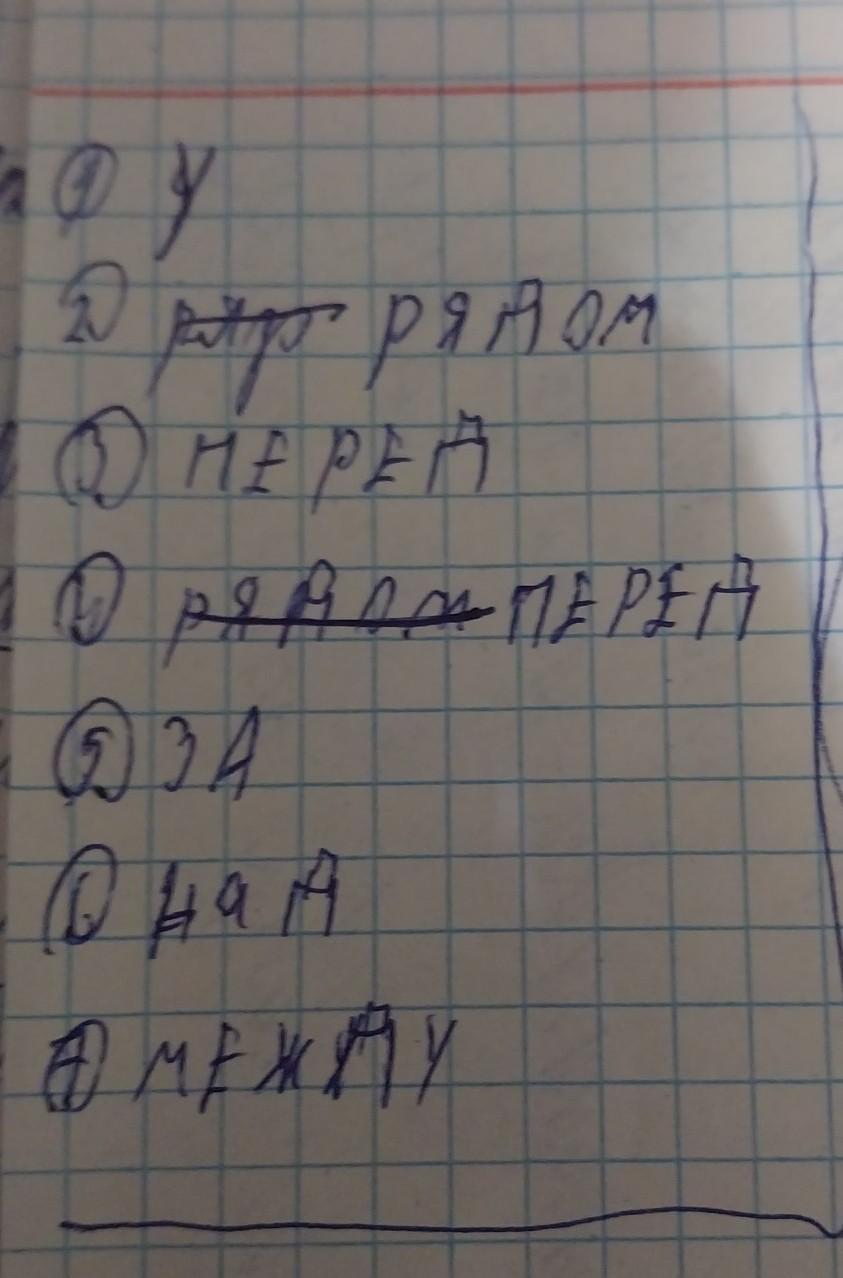 1 У
2 РЯДОМ
3 ПЕРЕД
4 РЯДОМ ПЕРЕД
5 ЗА
6 НаД
7 МЕЖДУ